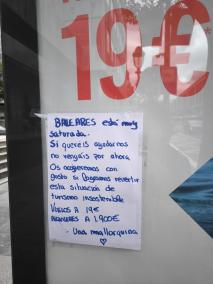 19€
BALEARES está muy
saturada.
Si queréis ayudarnos
no vengáis por ahora
Os acogeremos con
gusto si logramos revertir
esta situación de
turismo insostenible
VUELOS A 19€
ALQUILERES A 1.900€
- Una mallorquina